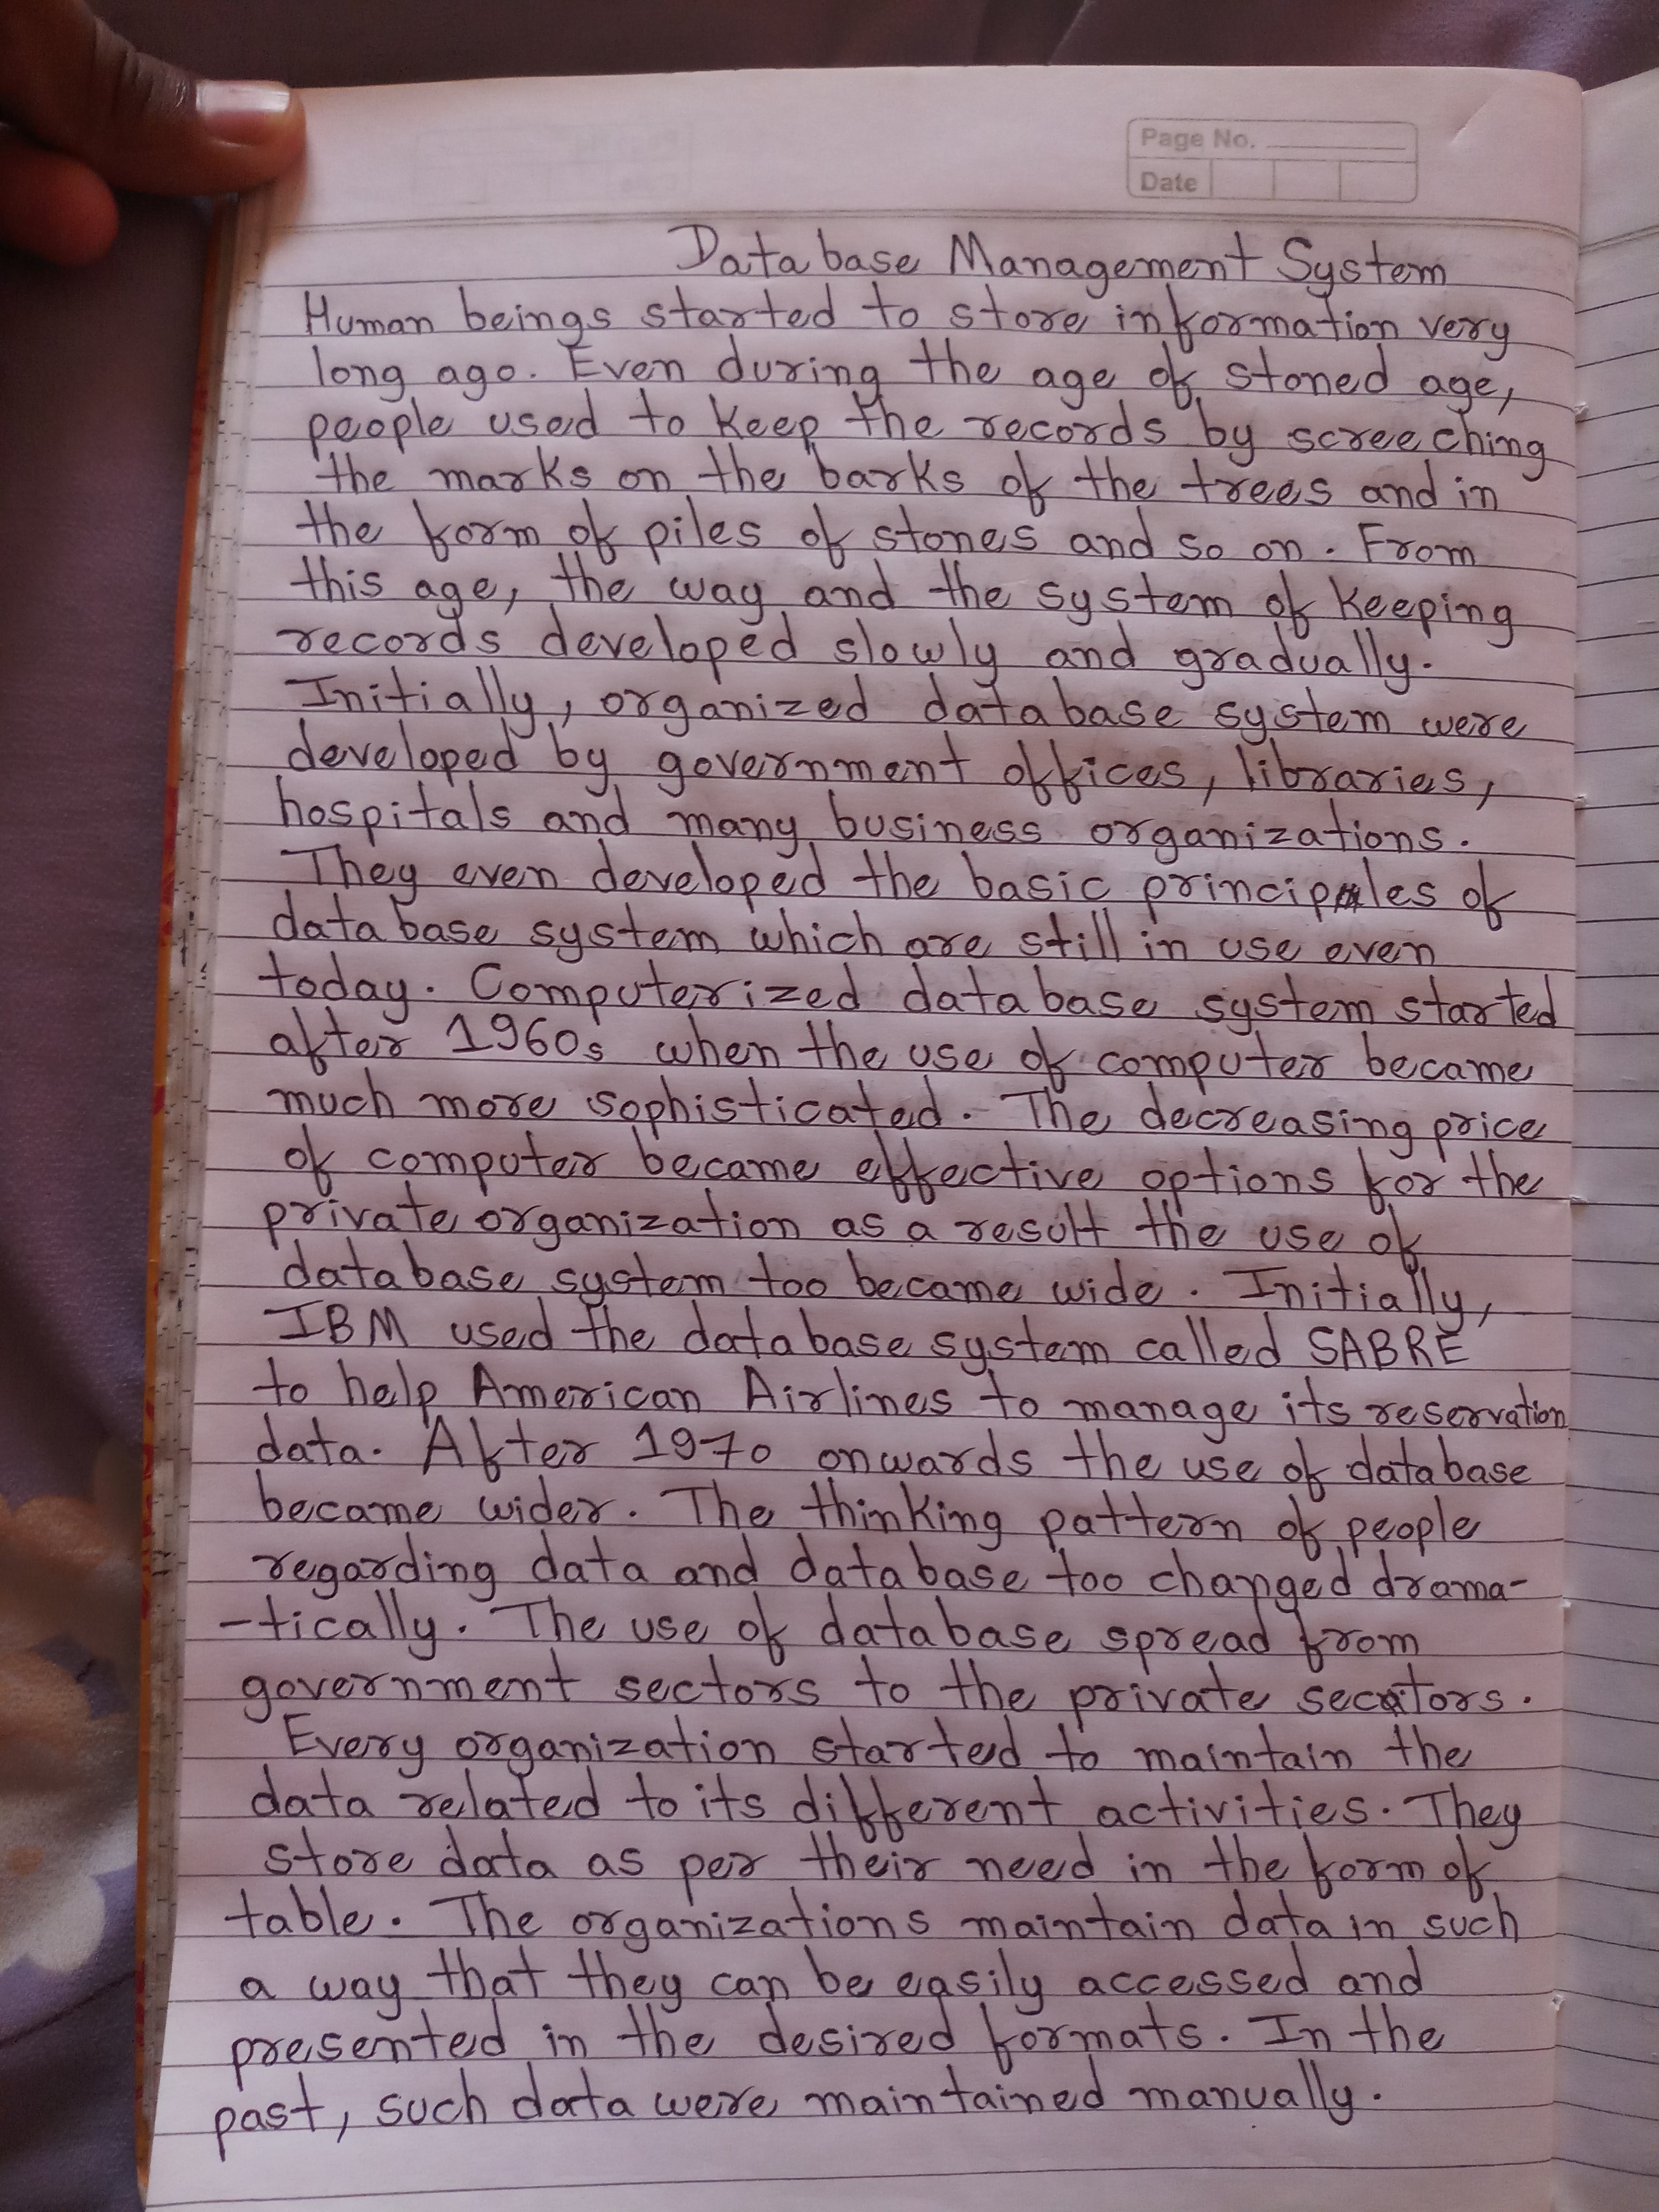 Page No.
Date
Database Management System
Human beings started to store information very
long ago. Even during the age of stoned age,
people used to keep the records by screeching
the marks on the barks of the trees and in
the form of piles of stones and so on. From
this age, the way and the system of keeping
records developed slowly and gradually.
Initially, organized database system were
developed by government offices, libraries,
hospitals and many business organizations.
They even developed the basic principles of
database system which are still in use even
today. Computerized database system started
after 1960s when the use of computer became
much more sophisticated. The decreasing price
of computer became effective options for the
private organization as a result the use of
database system too became wide. Initially,
IBM used the database system called SABRE
to help American Airlines to manage its reservation
data. After 1970 onwards the use of database
became wider. The thinking pattern of people
regarding data and database too changed drama-
-tically. The use of database spread from
government sectors to the private sectors.
Every organization started to maintain the
data related to its different activities. They
store data as per their need in the form of
table. The organizations maintain data in such
a way that they can be easily accessed and
presented in the desired formats. In the
past, such data were maintained manually.